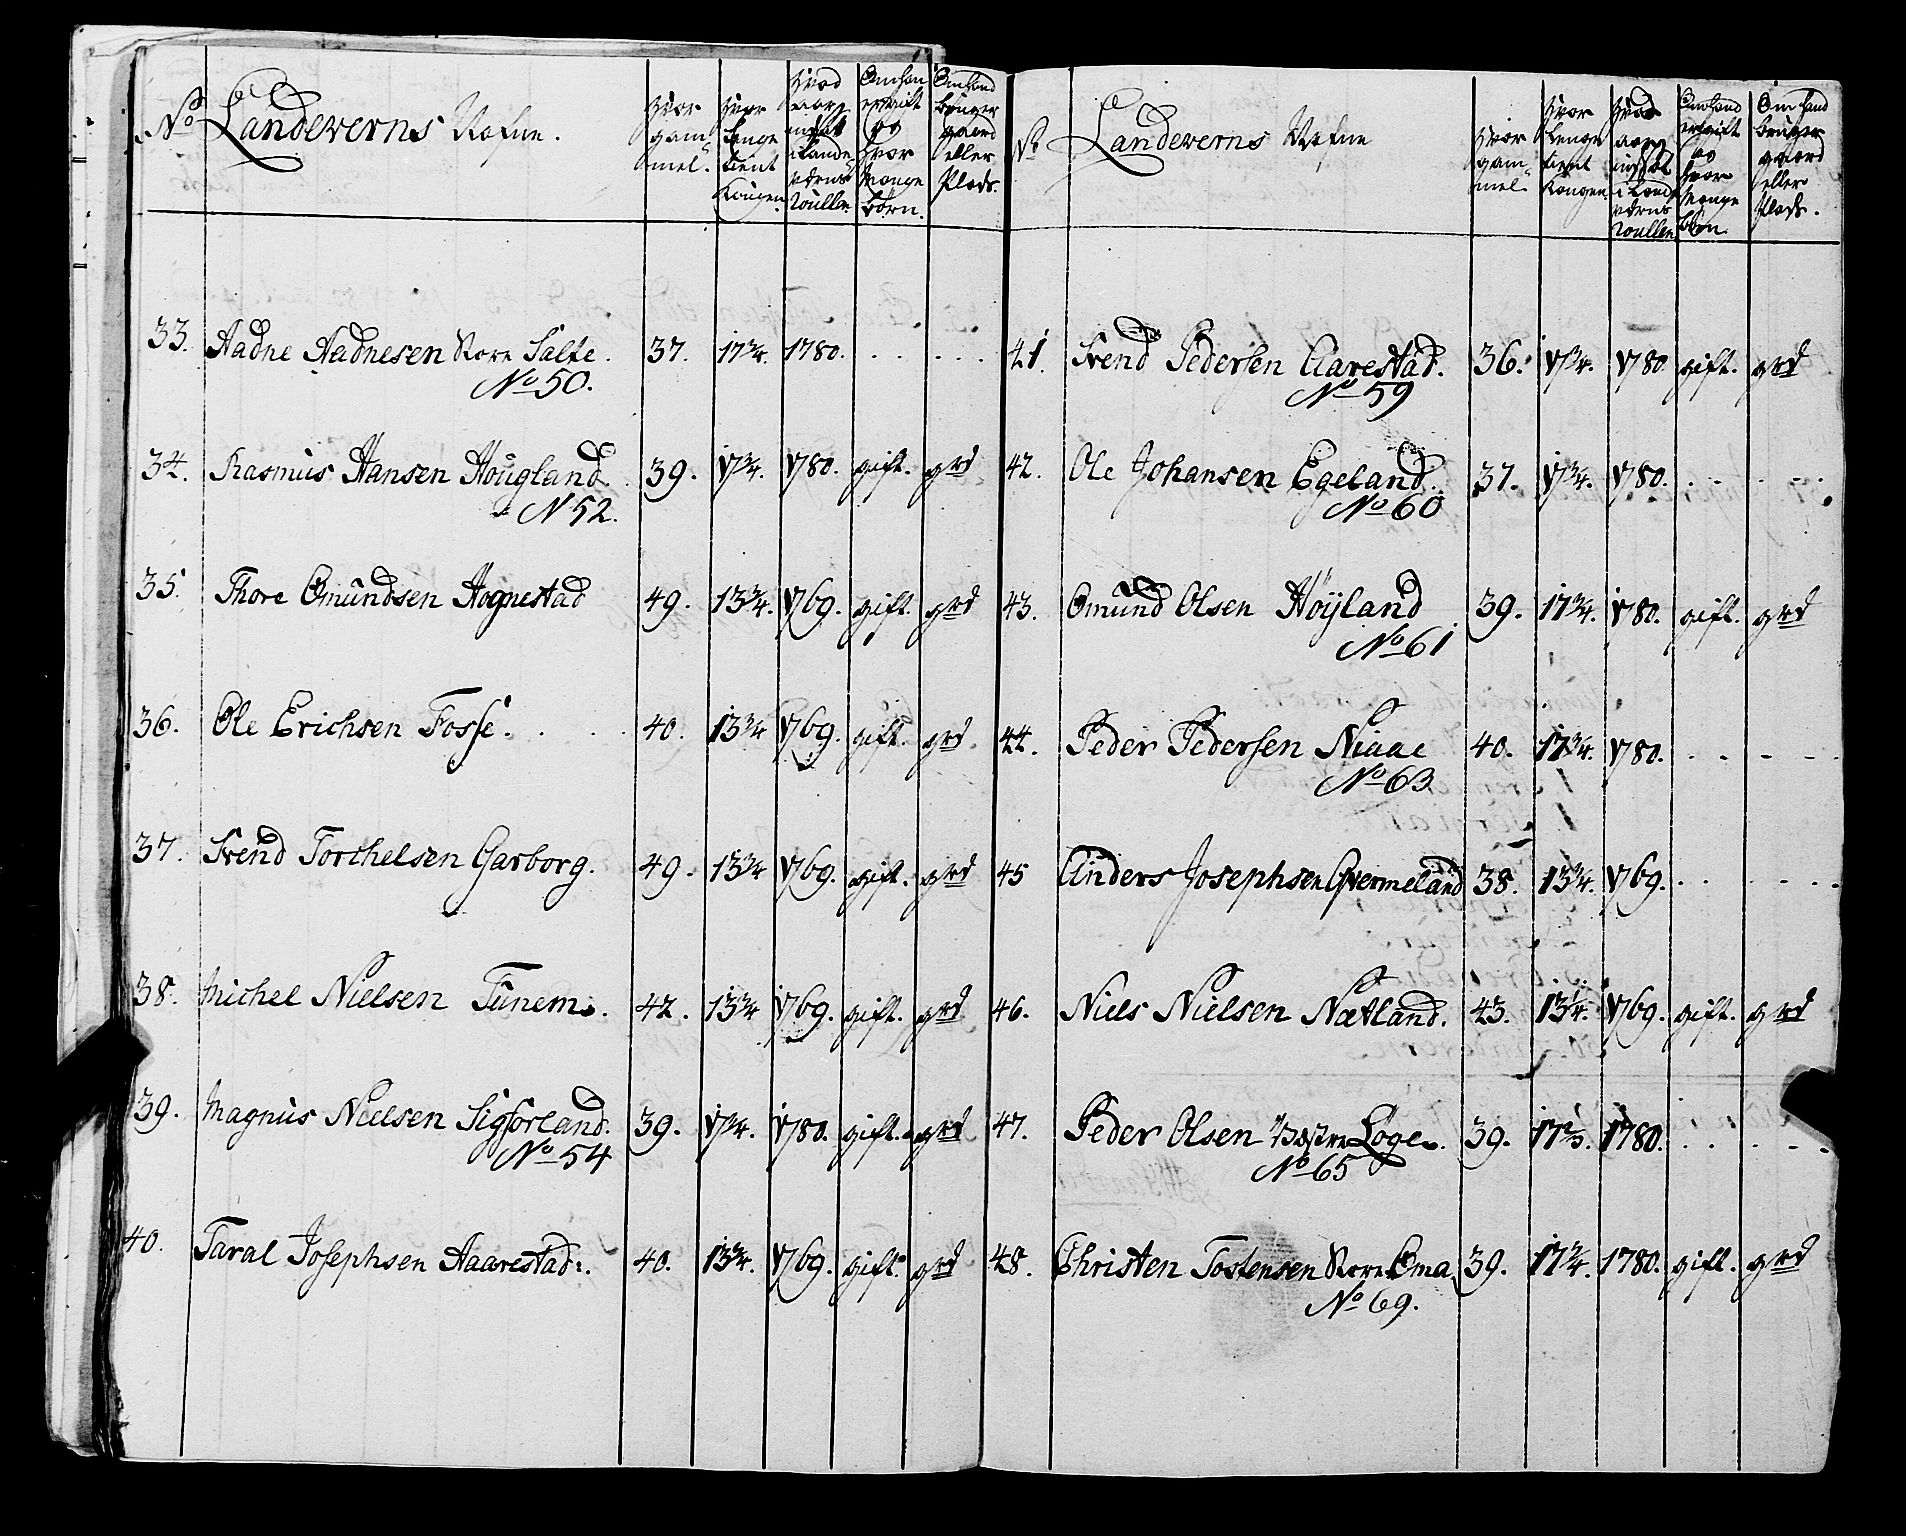 No Landeverns Nafne. Hvor gam- mel. Hvor Lenge tient Kongen. Hvad aar indsat i Lande verns Roullen Om han er gift og Hvor Mange börn. Om Hand bruger gaard eller Plads.
33. Aadne Aadnesen Store Salte. 37. 17 3/4. 1780. . . . . . .
No 50.
34. Rasmus Hansen Hougland. 39. 17 3/4. 1780. gift. grd
N 52.
35. Thore Omundsen Hognestad 49. 13 3/4. 1769. gift. grd
36. Ole Erichsen Fosse. 40. 13 3/4 1769. gift. grd.
37. Svend Torchelsen Garborg. 49. 13 3/4 1769. gift. grd
38. Michel Nielsen Tunem. 42. 13 3/4 1769. gift. grd
39. Magnus Nielsen Sigsorland. 39. 17 3/4. 1780. gift. grd
No 54
40. Taral Josephsen Aarestad. 40. 13 3/4. 1769. gift. grd
No Landeverns Nafne Hvor gam- mel. Hvor Lenge tient Kongen. Hvad aar indsat i Land verns Roullen Om hand er gift og Hvor Mange börn. Om Hand bruger gaard eller Plads.
41. Svend Pedersen Aarestad. 36. 17 3/4. 1780. gift. grd
No 59
42. Ole Johansen Egeland. 37. 17 3/4. 1780. . . . . .
No 60
43. Omund Olsen Höyland 39. 17 3/4. 1780. gift. grd
No 61
44. Peder Pedersen Niaae 40. 17 3/4. 1780. . . - - .
No 63
45 Anders Josephsen Qvermeland 38. 13 3/4. 1769. . . . . .
46. Niels Nielsen Nætland. 43. 13 1/4. 1769. gift. grd
47. Peder Olsen Vestre Løge. 39. 17 2/3. 1780. . . . . .
No 65
48. Christen Tostensen Store Oma 39. 17 3/4. 1780. gift. grd
No 69.